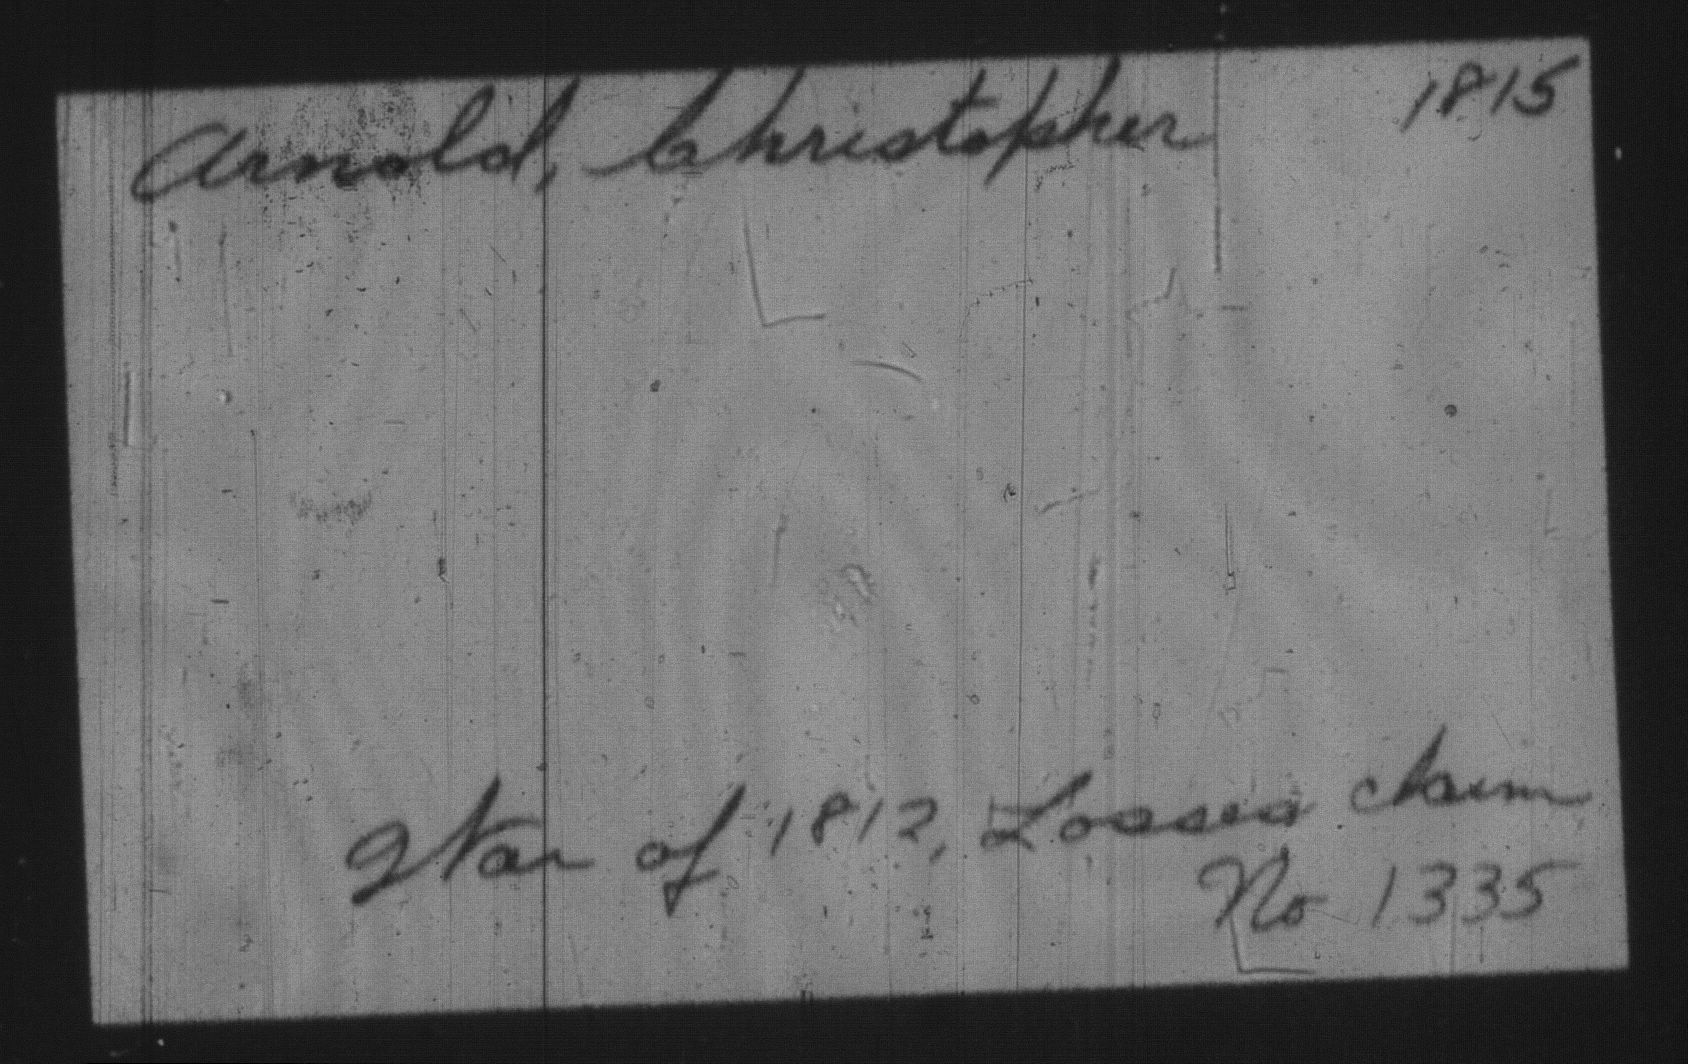 Arnold, Christopher 1815
War of 1812, Losses claim
No 1335